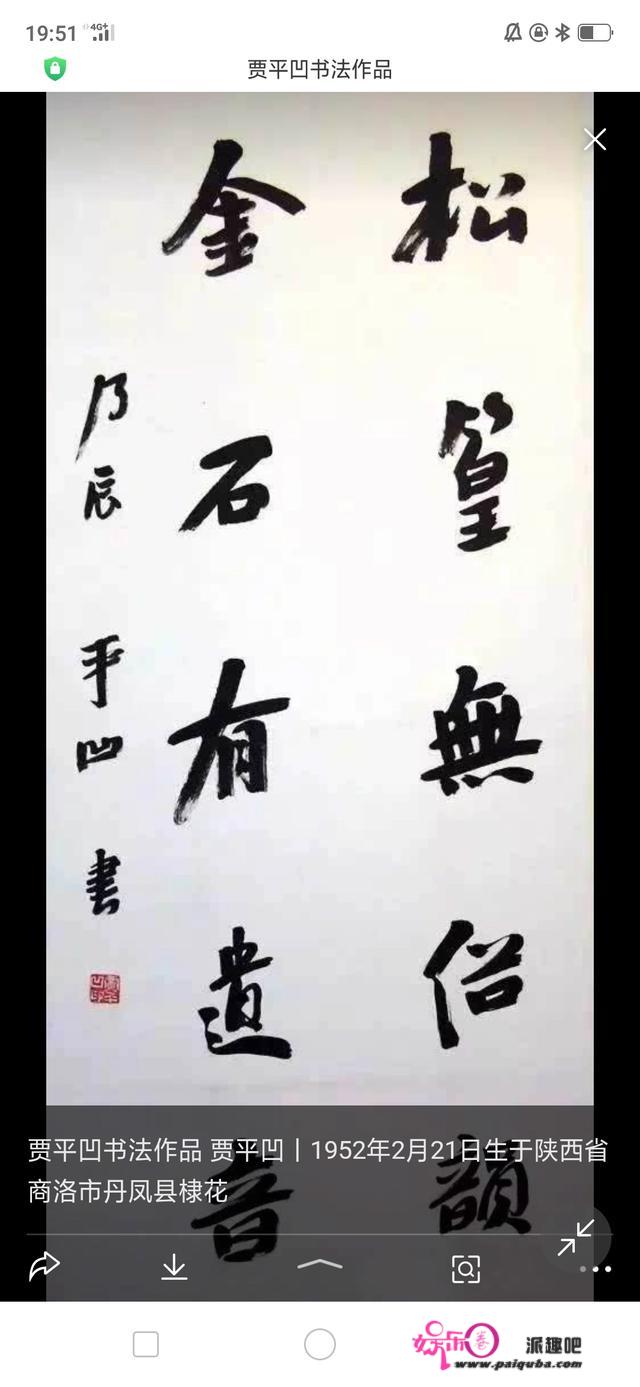 19:51 4G+
贾平凹书法作品
松篁無俗韻
金石有遺音
乃辰 平凹 書
贾平凹书法作品 贾平凹丨1952年2月21日生于陕西省
商洛市丹凤县棣花
娱乐圈 派趣吧
www.paiquba.com